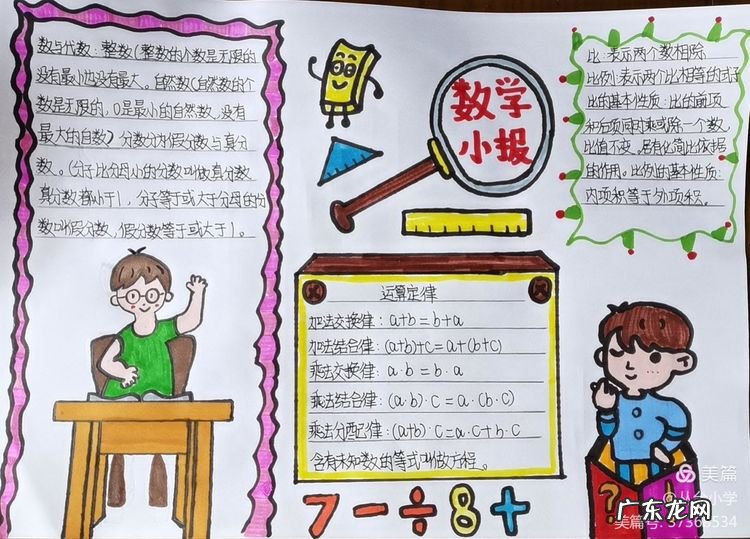 数与代数：整数(整数的个数是无限的
没有最小也没有最大。自然数(自然数的个
数是无限的，0是最小的自然数，没有
最大的自数）分数分为假分数与真分
数。(分子比分母小的分数叫做真分数
真分数都小于1，分子等于或大于分母的分
数叫假分数，假分数等于或大于1。
数学
小报
比：表示两个数相除
比例：表示两个比相等的式子
比的基本性质：比的前项
和后项同时乘或除一个数，
比值不变。是化简比依据
的作用。比例的基本性质：
内项积等于外项积。
运算定律
加法交换律：a+b=b+a
加法结合律：(a+b)+c=a+(b+c)
乘法交换律：a·b=b·a
乘法结合律：(a·b)·c=a·(b·c)
乘法分配律：(a+b)·c=a·c+b·c
含有未知数的等式叫做方程。
7-÷8+
?
!
美篇
小学
美篇号:37366534
广东龙网